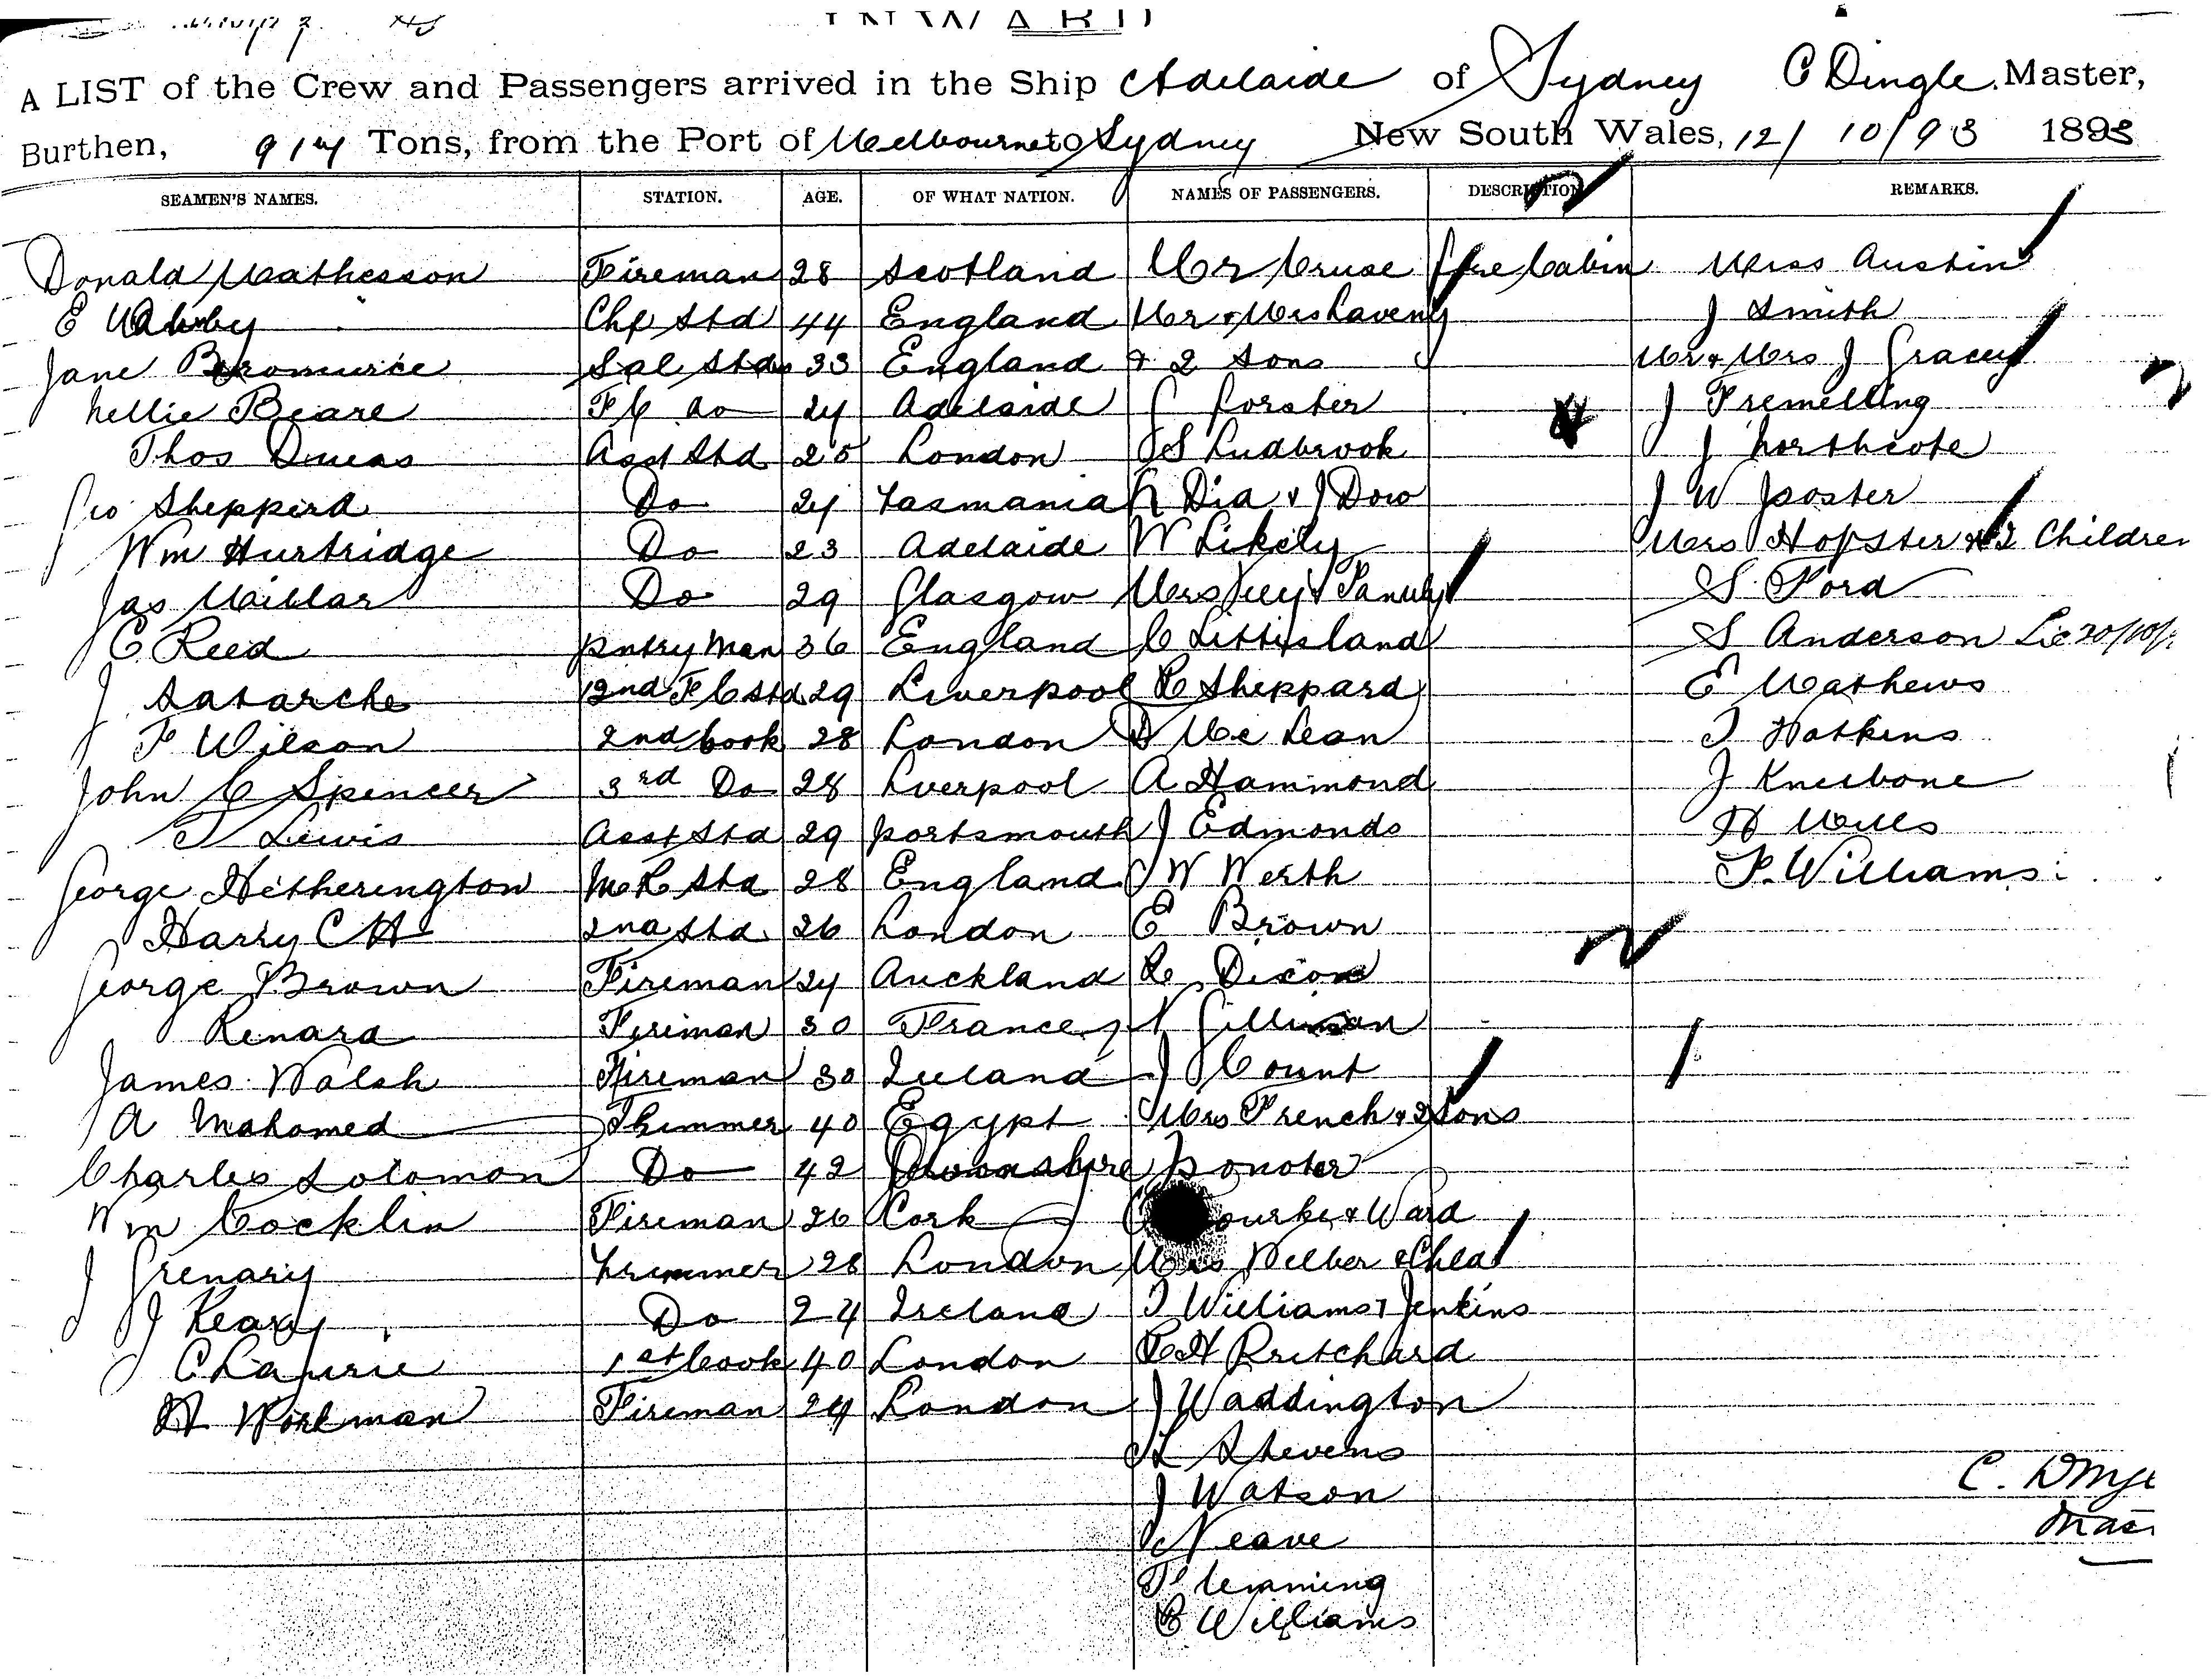 INWARD
A LIST of the Crew and Passengers arrived in the Ship Adelaide of Sydney C Dingle Master,
Burthen, Tons, from the Port of Melbourne to Sydney New South Wales, 12/10/93 1893
SEAMEN'S NAMES. STATION. AGE. OF WHAT NATION. NAMES OF PASSENGERS. DESCRIPTION REMARKS.
Donald Mathesson Fireman 28 Scotland Mr Cruse fore Cabin Miss Austin
E Chf Std 44 England Mr & Mrs Laveny J Smith
Jane Sal Stds 33 England & 2 sons Mr & Mrs J Gracey
Nellie Beare F C do 24 Adelaide C Forster J Fremelling
Thos Asst Std 25 London S Ludbrook J Northcote
Geo Shepperd Do 24 Tasmania Dia & J Dow J W
Wm Hurtridge Do 23 Adelaide W Likely Mrs Hopster & 2 Children
Jas Millar Do 29 Glasgow Mrs & Family S Ford
C Reed Pntry Man 36 England C S Anderson
J 2nd F C Std 29 Liverpool R Sheppard E Mathews
F Wilson 2nd Cook 28 London D Mc Lean T Hotkins
John C Spencer 3rd Do 28 Lverpool A Hammond J Kneebone
T Lewis Asst Std 29 Portsmouth J Edmonds H
George Hetherington Std 28 England J W Werth F. Williams
Harry C H 2nd Std 26 London E Brown
George Brown Fireman 24 Auckland R Dixon
Renard Fireman 30 France
James Walsh Fireman 30 Ireland J Count
A Mahomed Thimmer 40 Egypt Mrs French & 2 Sons
Charles Solomon Do 42 Devonshire
Wm Cocklin Fireman 26 Cork & Ward
J Grenary Trimmer 28 London Mrs Welber & Chld
J Keary Do 24 Ireland T Williams & Jenkins
C 1st Cook 40 London H Pritchard
H Workman Fireman 24 London J Waddington
Stevens
J Watson
Neave
Flemming
C Williams
C.